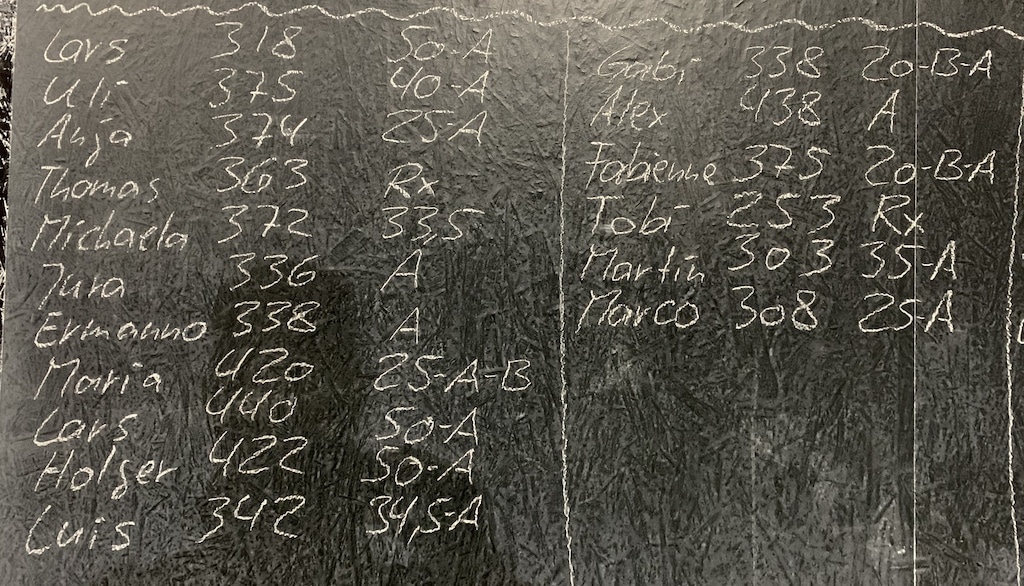 Lars 318 50-A
Uli 375 40-A
Anja 374 25-A
Thomas 363 Rx
Michaela 372 33,5
Jura 336 A
Ermanno 338 A
Maria 420 25-A-B
Lars 440 50-A
Holger 422 50-A
Luis 342 34,5-A
Gabi 338 20-B-A
Alex 438 A
Fabienne 375 20-B-A
Tobi 253 Rx
Martin 303 35-A
Marco 308 25-A